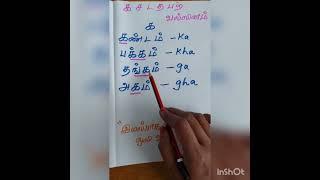 க ச ட த ப ற
வல்லினம்
க
கண்டம் - ka
பக்கம் - kha
தங்கம் - ga
அகம் - gha
InShOt